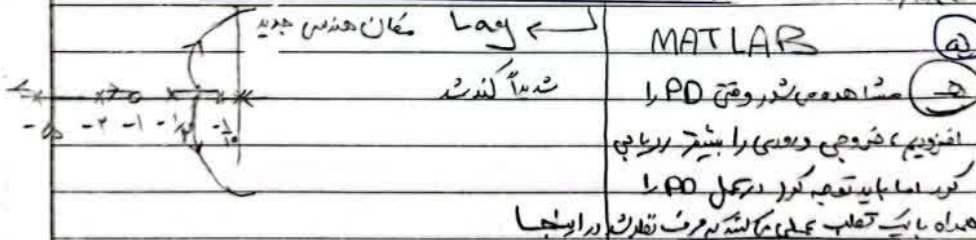 a) MATLAB
b) مشاهده می شود وقتی PD را
افزودیم، خروجی ورودی را بیشتر ردیابی
کرد اما باید توجه کرد در عمل PD را
همراه با یک قطب عملی می کنند در اینجا
Lag مکان هندسی جدید
شدیداً کند شد
-۵ -۲ -۱